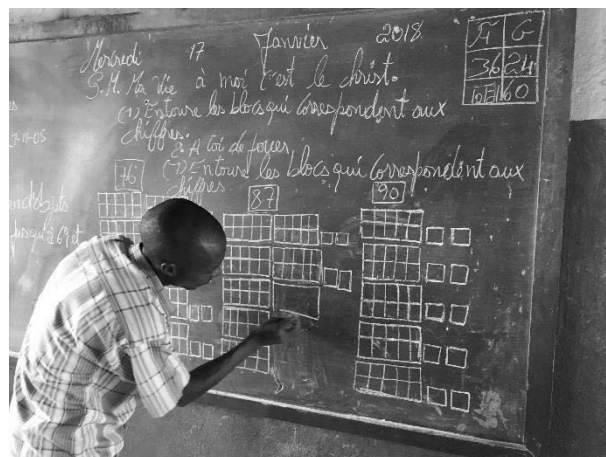 Mercredi 17 Janvier 2018
S.M. Ma Vie à moi c'est le christ.
(1) Entoure les blocs qui correspondent aux
chiffres.
2. A toi de jouer.
(1) Entoure les blocs qui correspondent aux
chiffres
76 87 90
G
36 24
60
jusqu'à 69 et